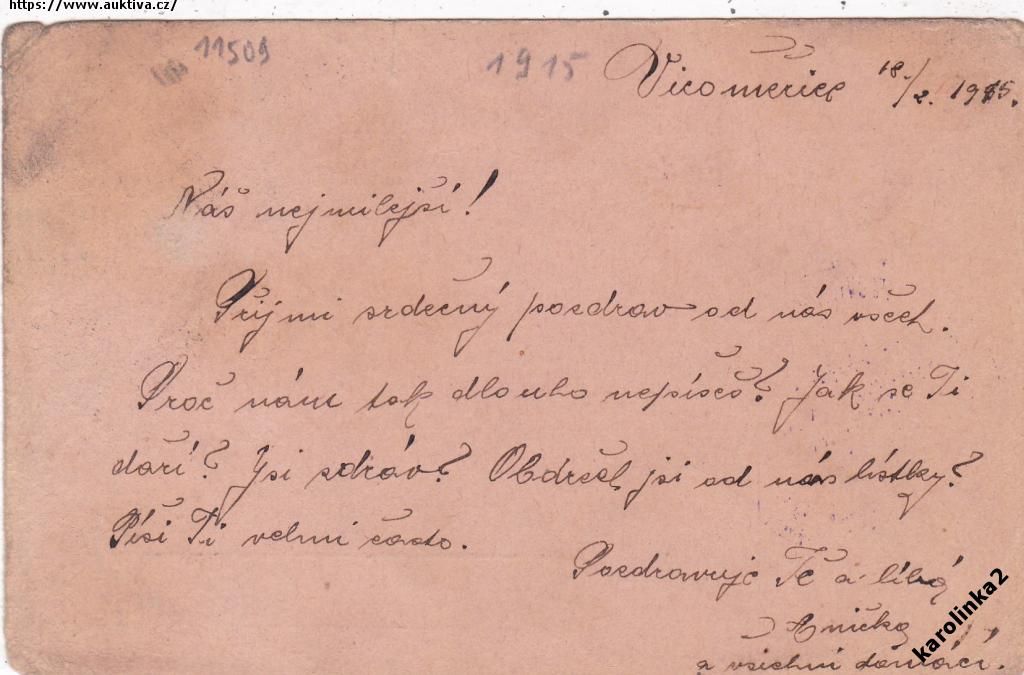 https://www.auktiva.cz/
11509
1915
Vicoměřice 18./2. 1915.
Náš nejmilejší!
Přijmi srdečný pozdrav od nás všech.
Proč nám tak dlouho nepíšeš? Jak se Ti
daří? Jsi zdráv? Obdržel jsi od nás lístky?
Píši Ti velmi často.
Pozdravuje Tě a líbá
Anička
a všichni domácí.
karolinka2